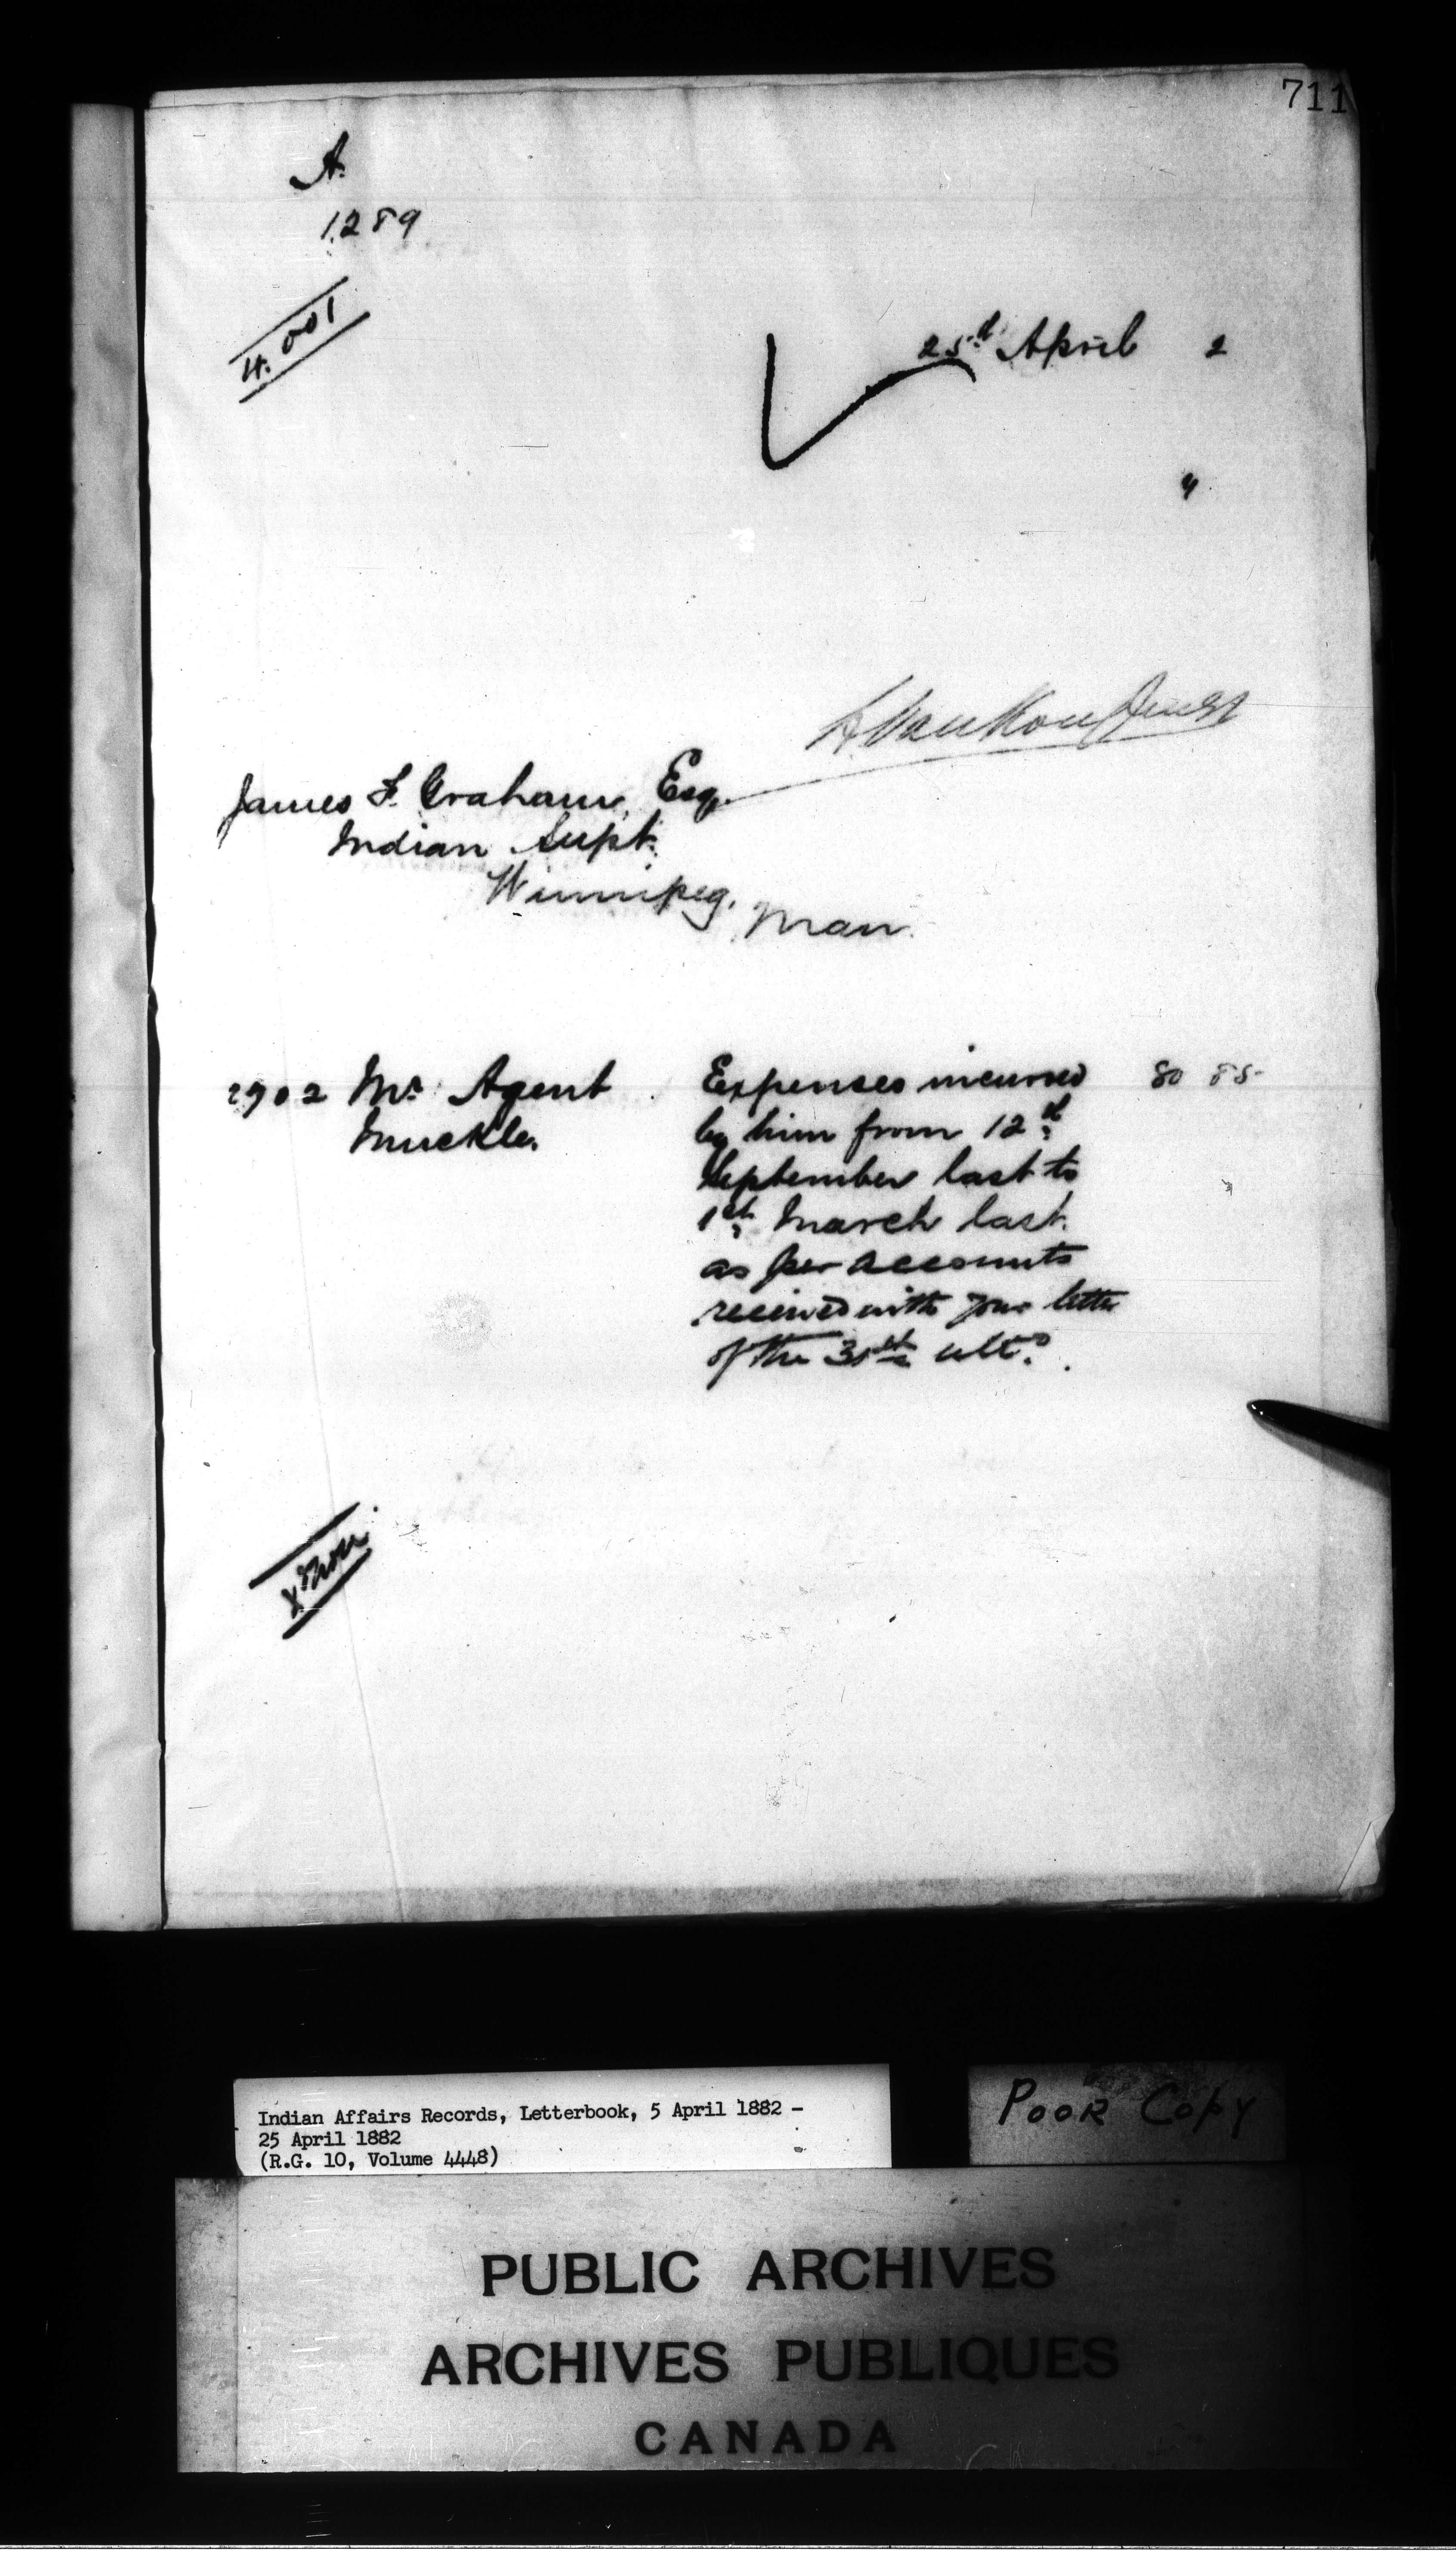 711
A.
1289
4.001
25th April 2
"
L Vankoughnet
James F. Graham, Esq.
Indian Supt.
Winnipeg,
Man.
2902 Mr. Agent Expenses incurred 80 85
Muckle. by him from 12th
September last to
1st March last.
as per accounts
received with your letter
of the 31st ulto.
Indian Affairs Records, Letterbook, 5 April 1882 -
25 April 1882
(R.G. 10, Volume 4448)
POOR COPY
PUBLIC ARCHIVES
ARCHIVES PUBLIQUES
CANADA